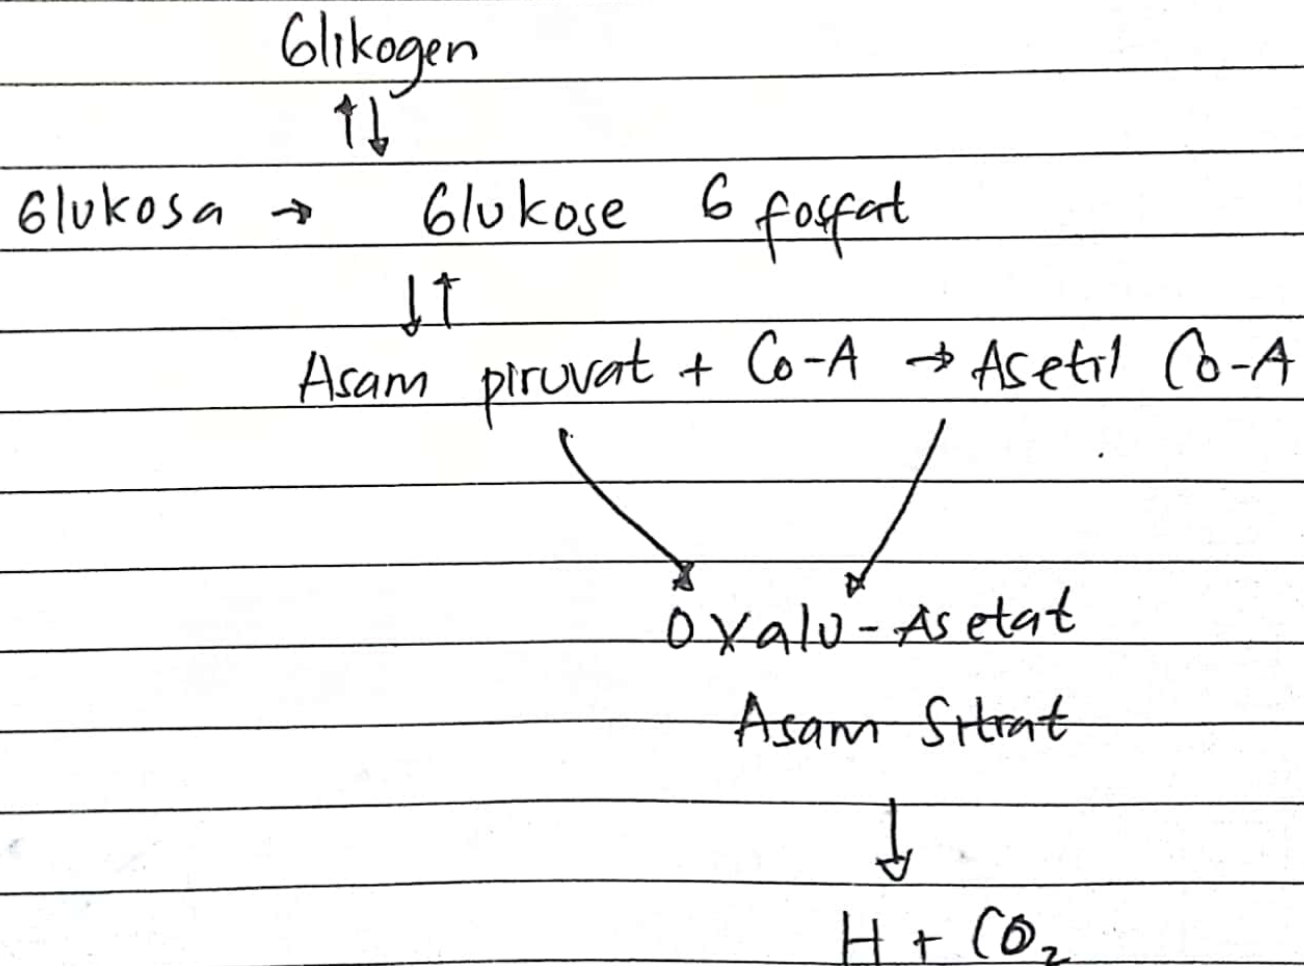 Glikogen
↑↓
Glukosa → Glukose 6 fosfat
↓↑
Asam piruvat + Co-A → Asetil Co-A
Oxalo-Asetat
Asam Sitrat
↓
H + CO₂